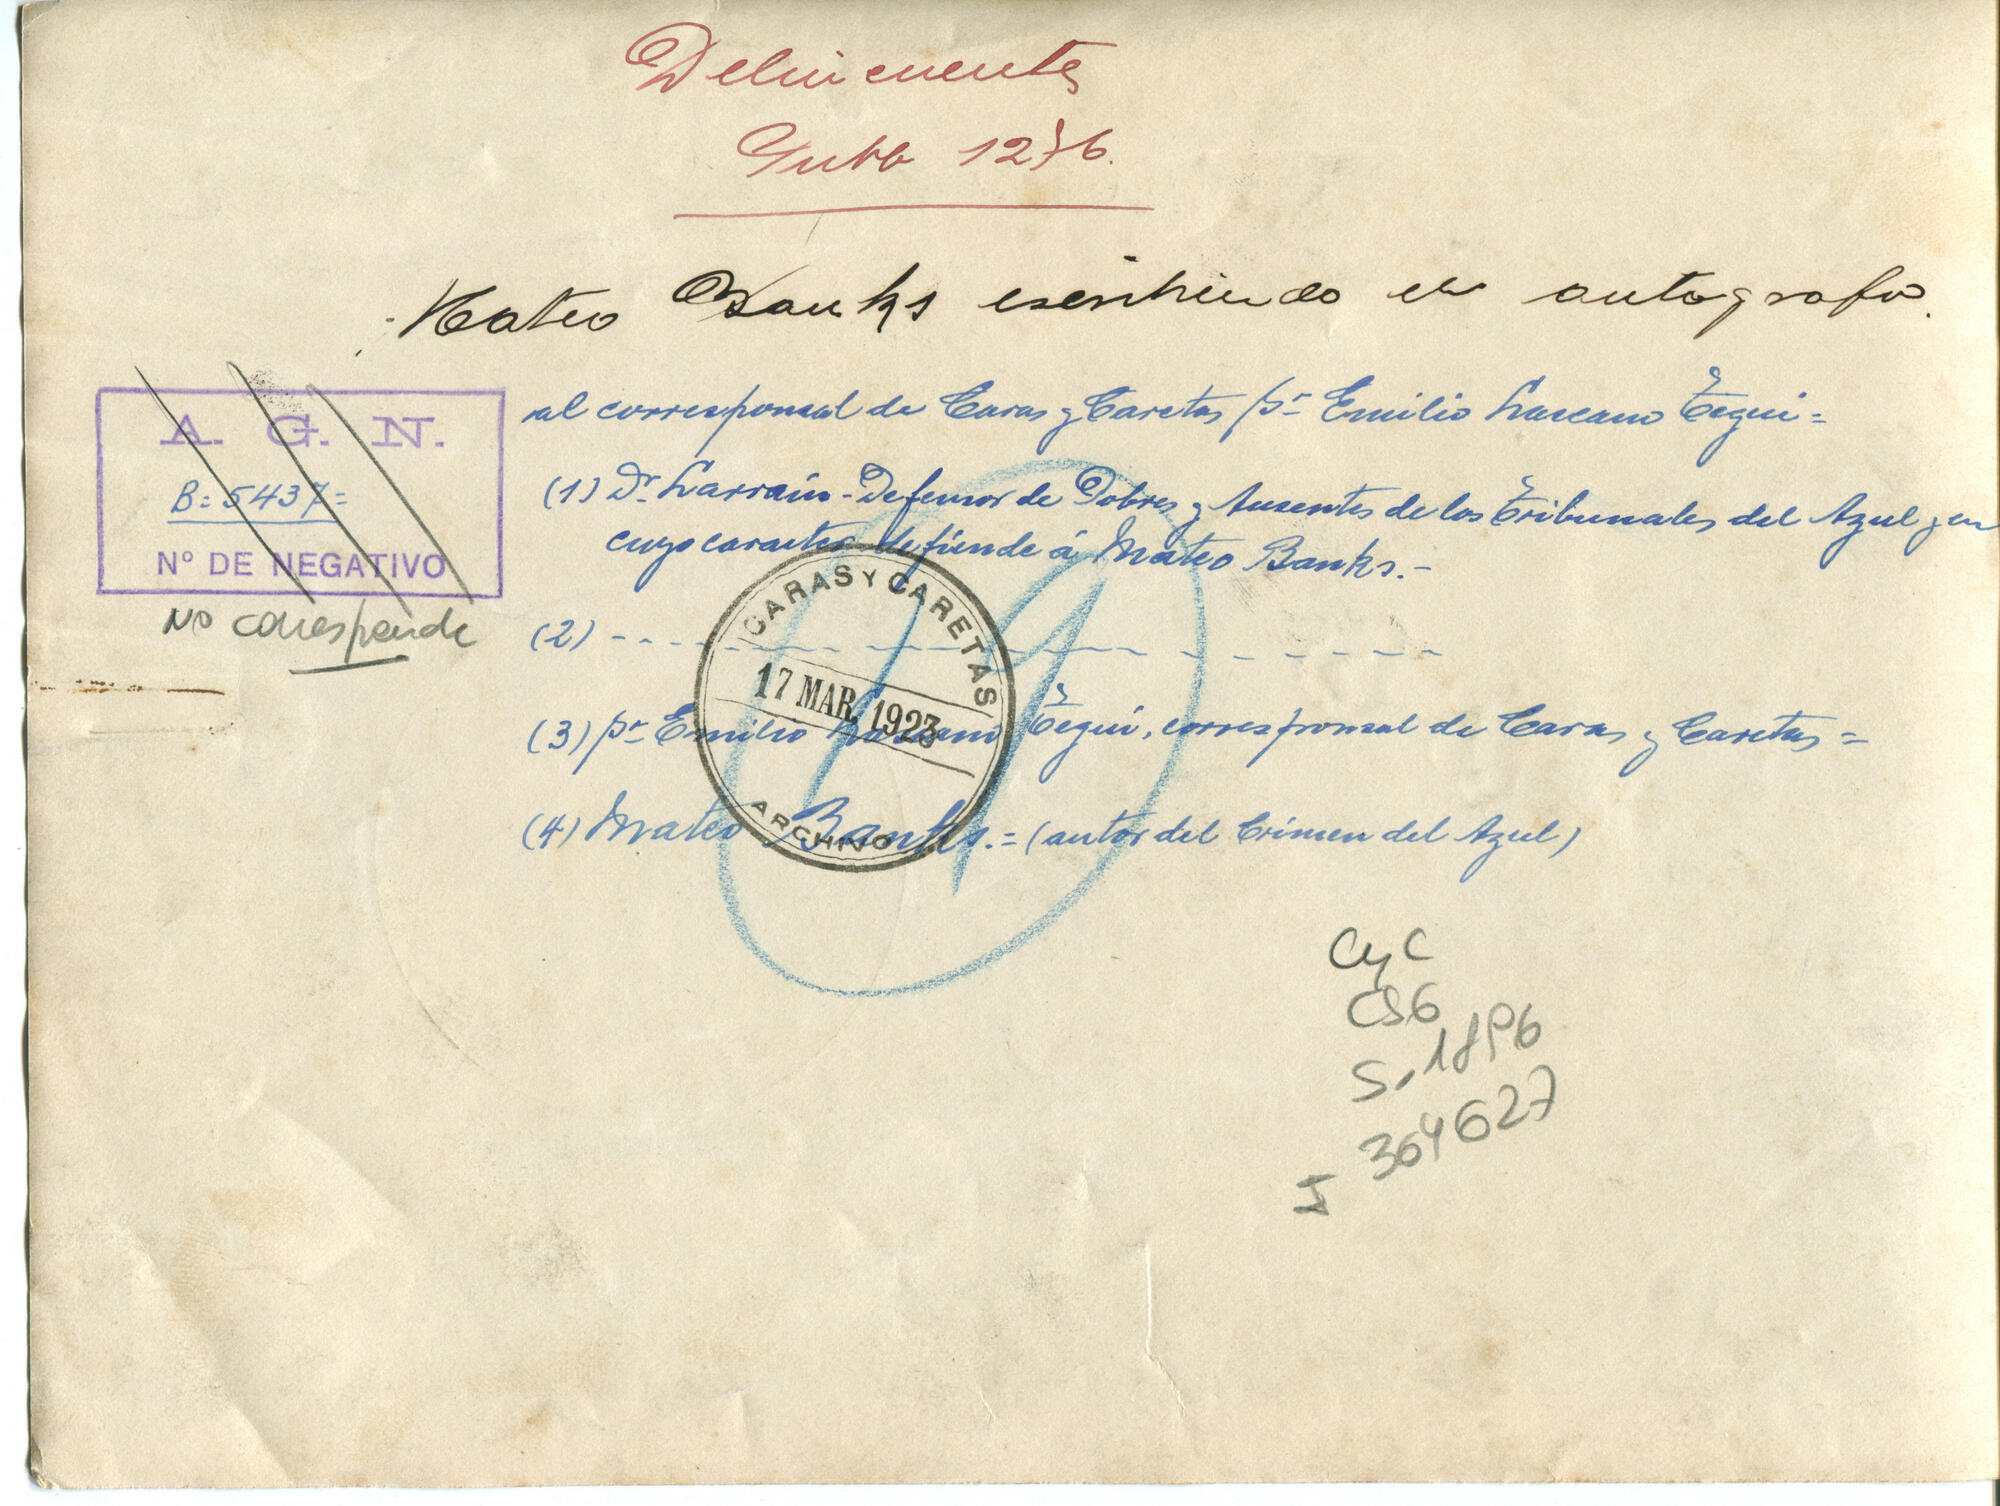 Delincuentes
1276.
Mateo Banks escribiendo un autografo.
al corresponsal de Caras y Caretas Sr Emilio Lascano Tegui =
(1) Dr. Larrain - Defensor de Pobres y Ausentes de los Tribunales del Azul y en
cuyo caracter defiende á Mateo Banks. -
(2) - - - - - - - - - - - - - -
(3) Sr Emilio Lascano Tegui, corresponsal de Caras y Caretas =
(4) Mateo Banks. = (autor del Crimen del Azul)
A. G. N.
B = 5437 =
Nº DE NEGATIVO
No corresponde
CARAS Y CARETAS
17 MAR. 1923
ARCHIVO
1
CyC
CS6
S. 1896
364627
I